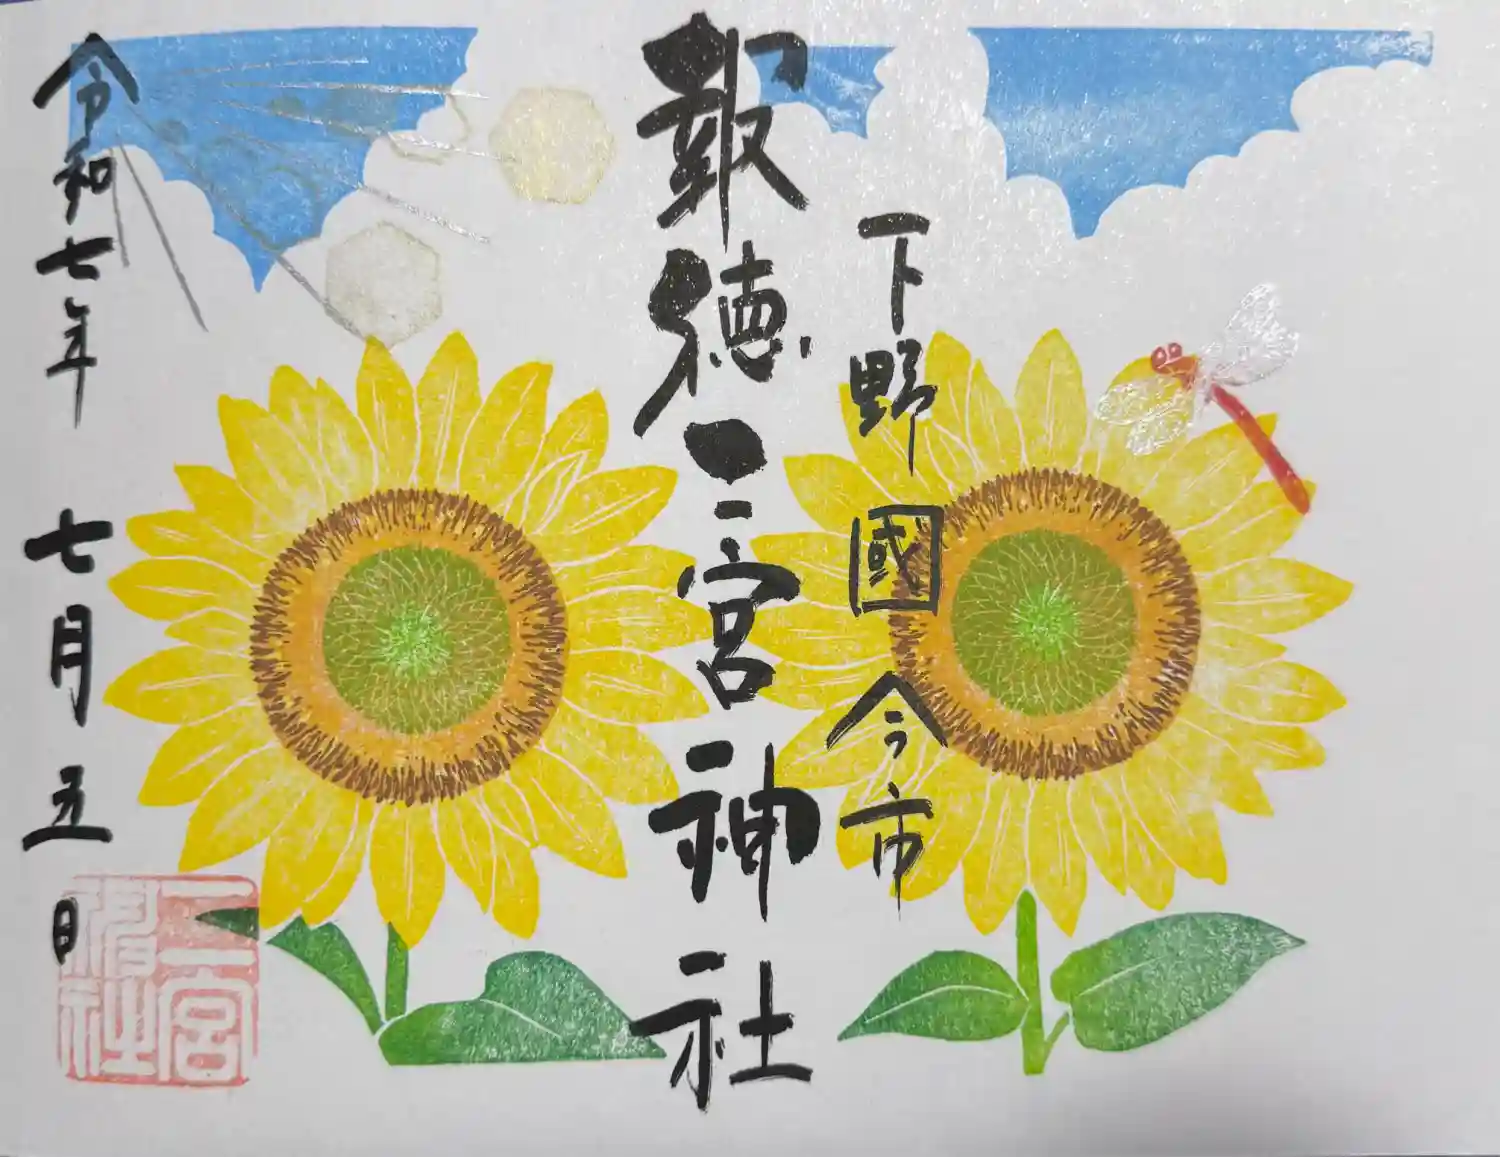 下野國 今市
報徳二宮神社
令和七年 七月五日
二宮神社